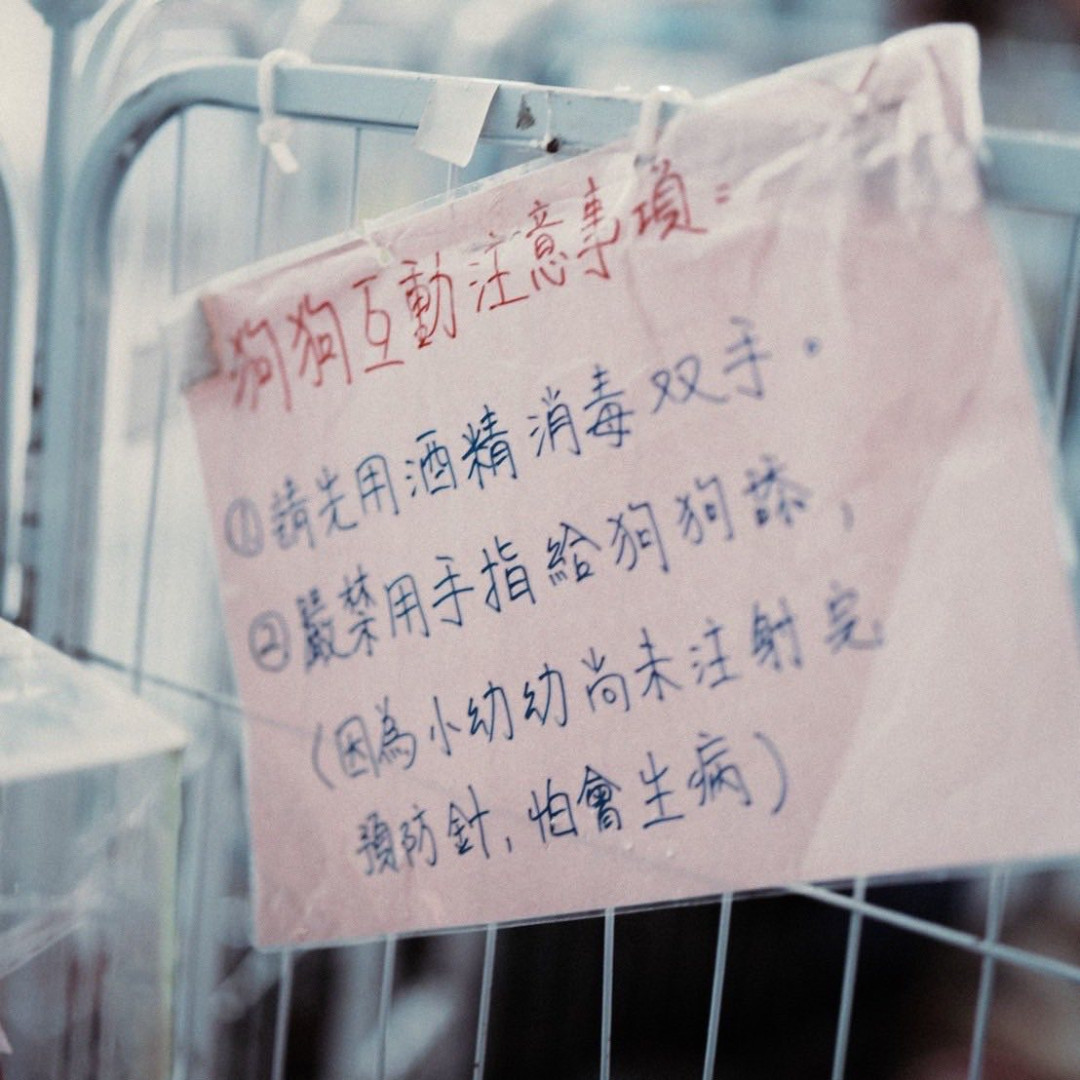 狗狗互動注意事項：
①請先用酒精消毒双手。
②嚴禁用手指給狗狗舔，
(因為小幼幼尚未注射完
預防針,怕會生病)